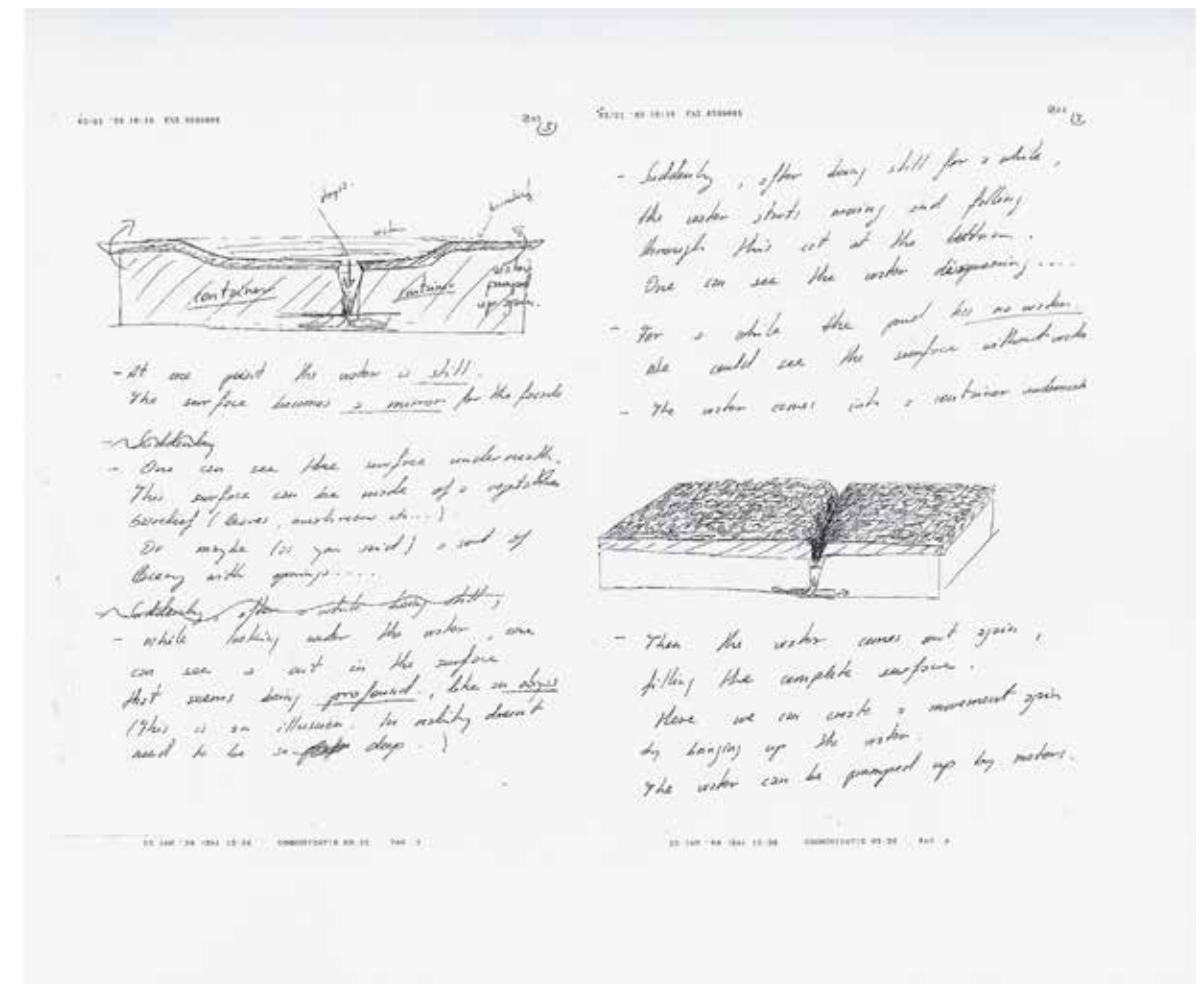 (3)
water
boundary
container
container
water
pumped
up again.
- At one point the water is still.
The surface becomes a mirror for the facade
- Suddenly
- One can see the surface underneath.
This surface can be made of a vegetable
(leaves, mushroom etc...)
Or maybe (as you said) a sort of
with openings....
- Suddenly, after a while being still,
- while looking under the water, one
can see a cut in the surface
that seems being profound, like an abyss
(This is an illusion. In reality doesn't
need to be so deep.)
- Suddenly, after being still for a while,
the water starts moving and falling
through this cut at the bottom.
One can see the water disappearing....
- For a while the pond has no water.
We could see the surface without water
- The water comes into a container underneath
- Then the water comes out again,
filling the complete surface.
Here we can create a movement again
by bringing up the water.
The water can be pumped up by motors.